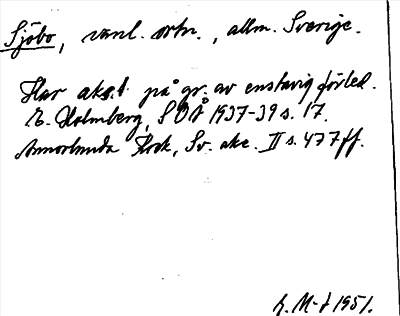 Sjöbo, vanl. ortn., allm. Sverige.
Har aks. 1 på gr. av enstavig förled.
E. Holmberg, SOÅ 1937-39 s. 17.
Annorlunda Kock, Sv. akc. II s. 477 ff.
1951.